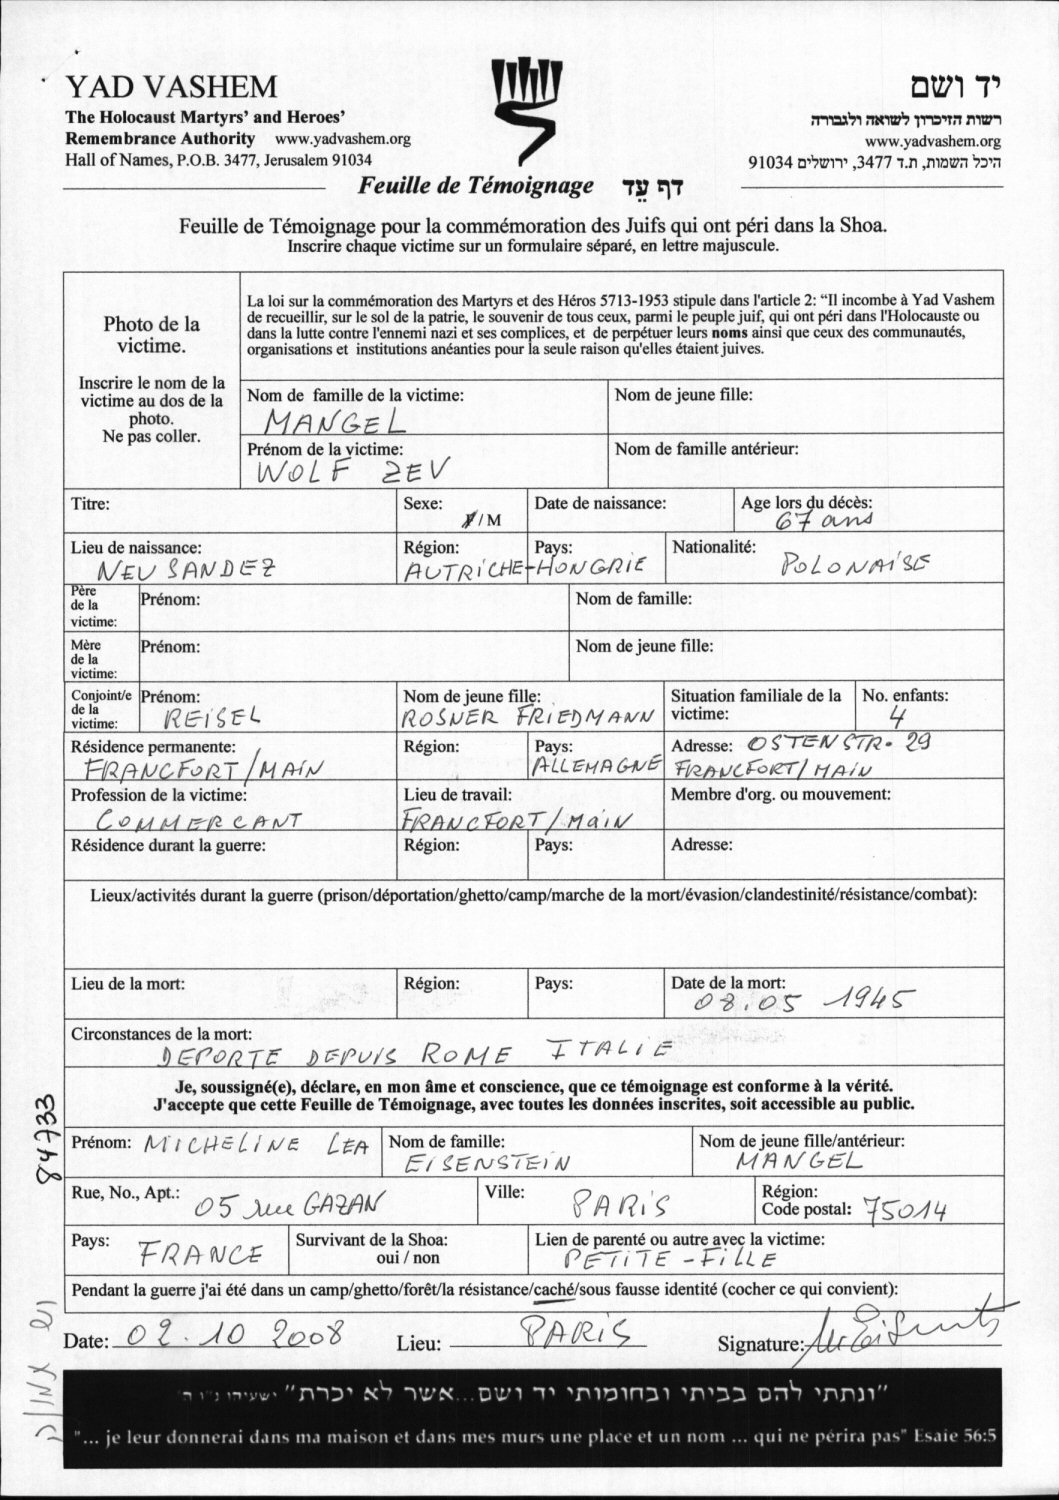 YAD VASHEM
The Holocaust Martyrs' and Heroes'
Remembrance Authority www.yadvashem.org
Hall of Names, P.O.B. 3477, Jerusalem 91034
יד ושם
רשות הזיכרון לשואה ולגבורה
www.yadvashem.org
היכל השמות, ת.ד 3477, ירושלים 91034
Feuille de Témoignage דף עֵד
Feuille de Témoignage pour la commémoration des Juifs qui ont péri dans la Shoa.
Inscrire chaque victime sur un formulaire séparé, en lettre majuscule.
Photo de la
victime.
Inscrire le nom de la
victime au dos de la
photo.
Ne pas coller.
La loi sur la commémoration des Martyrs et des Héros 5713-1953 stipule dans l'article 2: "Il incombe à Yad Vashem
de recueillir, sur le sol de la patrie, le souvenir de tous ceux, parmi le peuple juif, qui ont péri dans l'Holocauste ou
dans la lutte contre l'ennemi nazi et ses complices, et de perpétuer leurs noms ainsi que ceux des communautés,
organisations et institutions anéanties pour la seule raison qu'elles étaient juives.
Nom de famille de la victime: Nom de jeune fille:
MANGEL
Prénom de la victime: Nom de famille antérieur:
WOLF ZEV
Titre: Sexe: F/M Date de naissance: Age lors du décès:
67 ans
Lieu de naissance: Région: Pays: Nationalité:
NEU SANDEZ AUTRICHE-HONGRIE POLONAISE
Père
de la
victime:
Prénom: Nom de famille:
Mère
de la
victime:
Prénom: Nom de jeune fille:
Conjoint/e
de la
victime:
Prénom: Nom de jeune fille: Situation familiale de la
victime: No. enfants:
REISEL ROSNER FRIEDMANN 4
Résidence permanente: Région: Pays: Adresse: OSTENSTR. 29
FRANCFORT/MAIN ALLEMAGNE FRANCFORT/MAIN
Profession de la victime: Lieu de travail: Membre d'org. ou mouvement:
COMMERCANT FRANCFORT/MAIN
Résidence durant la guerre: Région: Pays: Adresse:
Lieux/activités durant la guerre (prison/déportation/ghetto/camp/marche de la mort/évasion/clandestinité/résistance/combat):
Lieu de la mort: Région: Pays: Date de la mort:
08.05 1945
Circonstances de la mort:
DEPORTE DEPUIS ROME ITALIE
Je, soussigné(e), déclare, en mon âme et conscience, que ce témoignage est conforme à la vérité.
J'accepte que cette Feuille de Témoignage, avec toutes les données inscrites, soit accessible au public.
Prénom: MICHELINE LEA Nom de famille: Nom de jeune fille/antérieur:
EISENSTEIN MANGEL
Rue, No., Apt.: 05 rue GAZAN Ville: PARIS Région:
Code postal: 75014
Pays: FRANCE Survivant de la Shoa:
oui / non
Lien de parenté ou autre avec la victime:
PETITE-FILLE
Pendant la guerre j'ai été dans un camp/ghetto/forêt/la résistance/caché/sous fausse identité (cocher ce qui convient):
Date: 02.10 2008 Lieu: PARIS Signature:
"ונתתי להם בביתי ובחומותי יד ושם...אשר לא יכרת" ישעיהו נ"ו ה'
"... je leur donnerai dans ma maison et dans mes murs une place et un nom ... qui ne périra pas" Esaie 56:5
84733